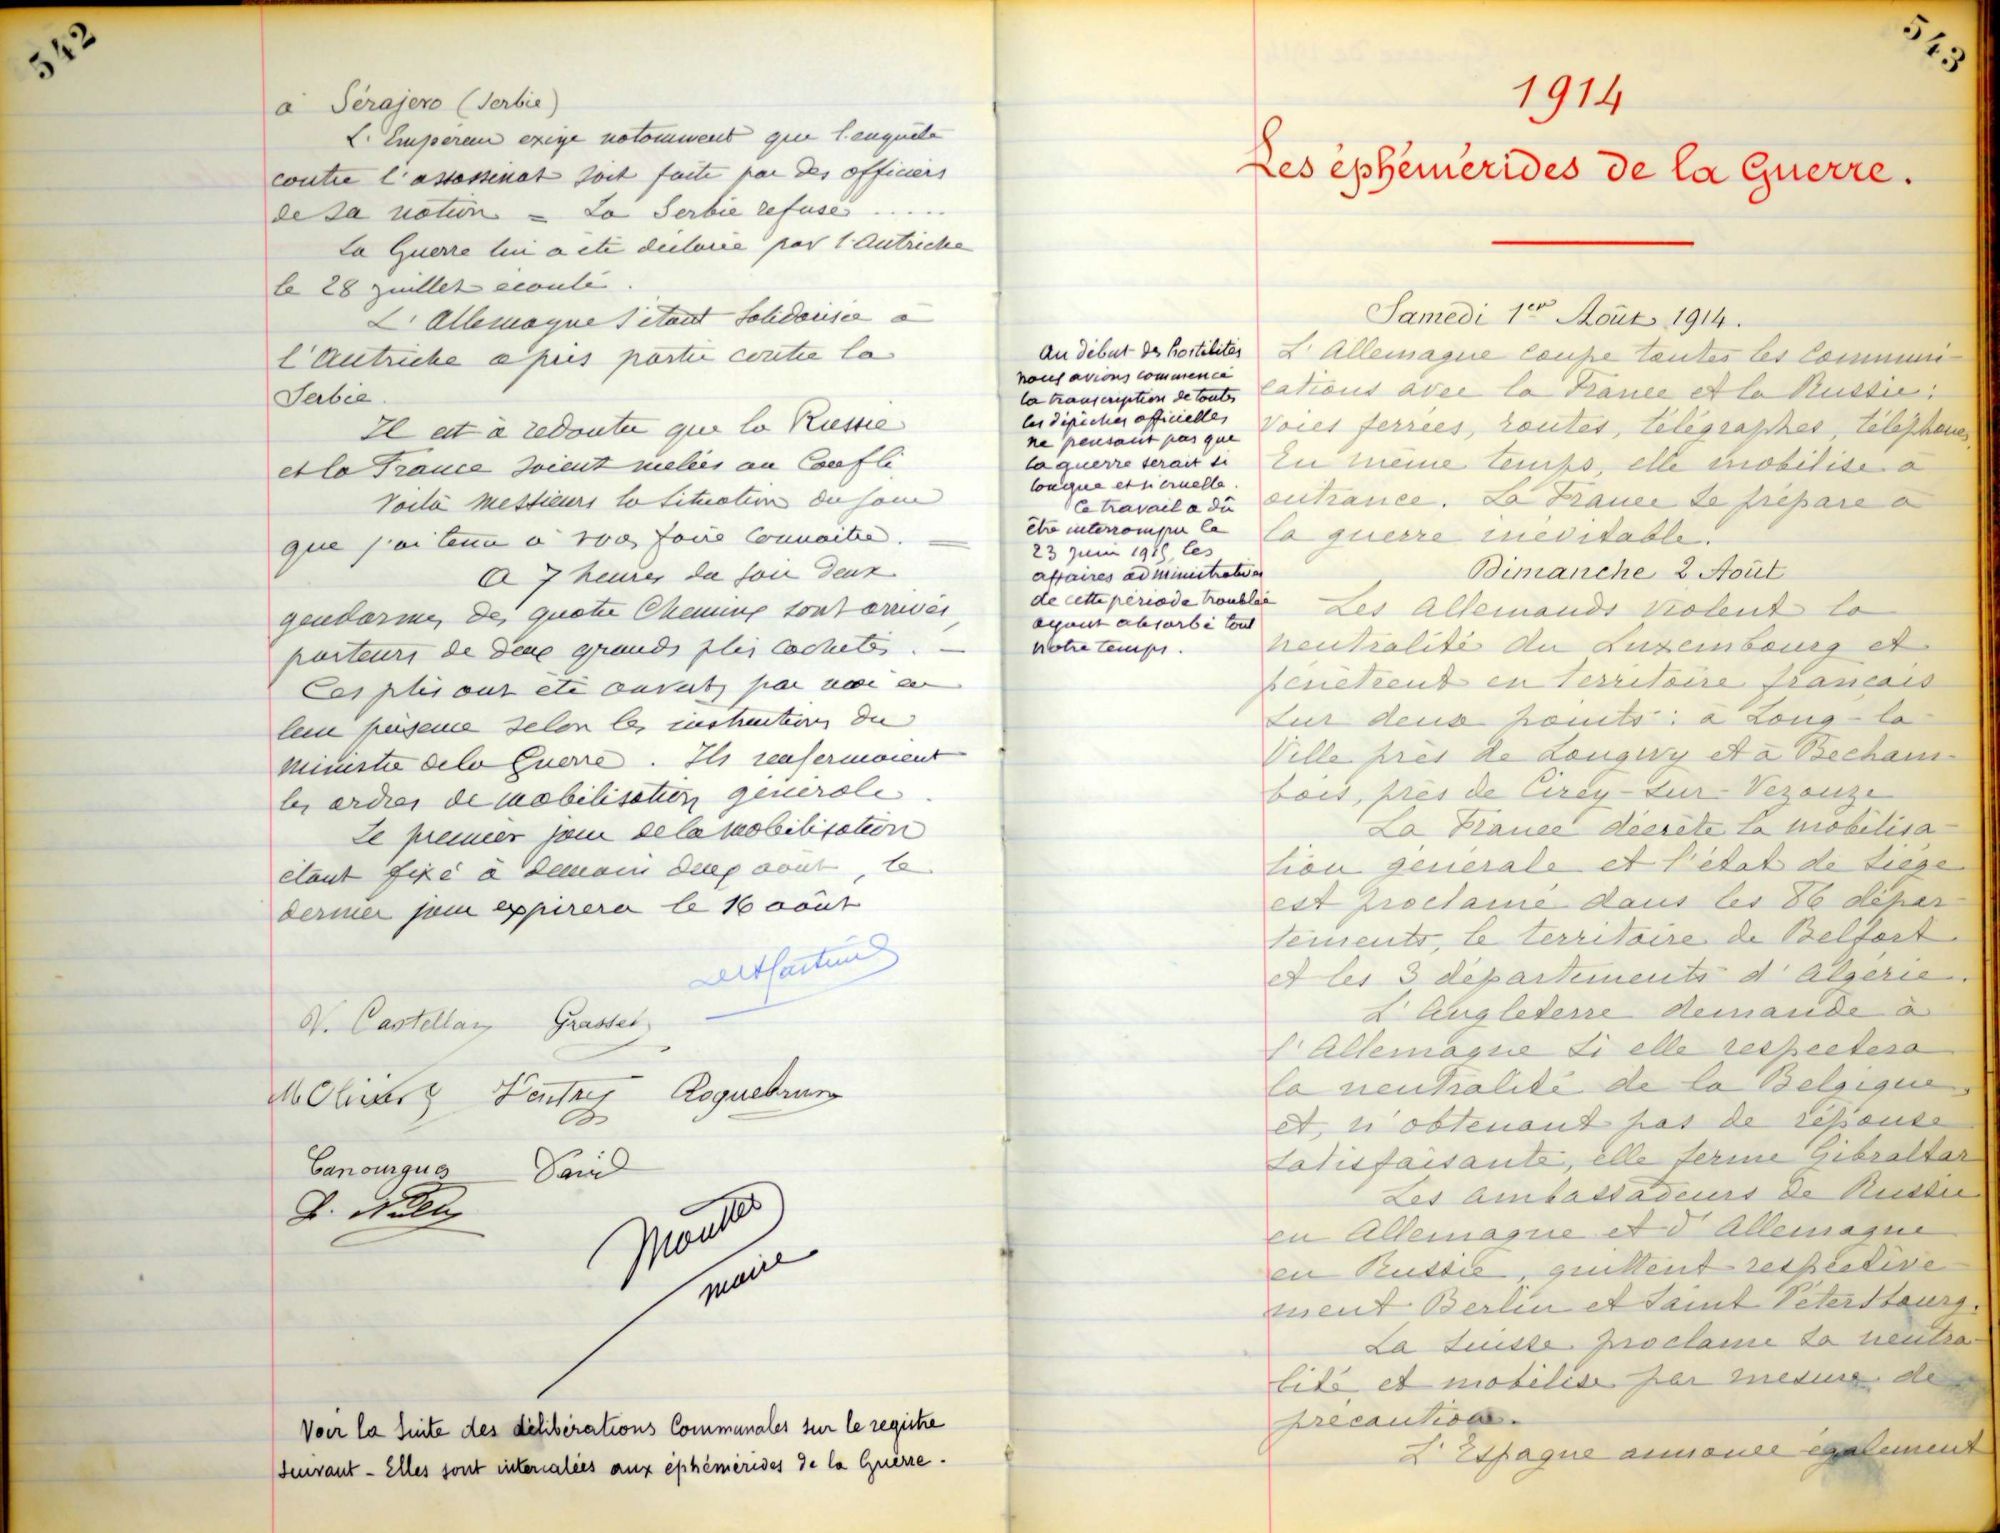 542
à Sérajevo (Serbie)
L'Empereur exige notamment que l'enquête
contre l'assassinat soit faite par des officiers
de sa nation = La Serbie refuse .....
La Guerre lui a été déclarée par l'Autriche
le 28 juillet écoulé.
L'Allemagne s'étant solidarisée à
l'Autriche a pris partie contre la
Serbie.
Il est à redouter que la Russie
et la France soient mêlées au Confli
Voilà Messieurs la Situation du jour
que j'ai tenu à vous faire connaitre. =
A 7 heures du soir deux
gendarmes des quatre Chemins sont arrivés,
porteurs de deux grands plis cachetés. -
Ces plis ont été ouverts par moi en
leur présence selon les instructions du
Ministre de la Guerre. Ils renfermaient
les ordres de mobilisation générale.
Le premier jour de la mobilisation
étant fixé à demain deux août, le
dernier jour expirera le 16 août
V. Castellan Grasset
M Olivier Ventre Roquebrune
Canourgues David
Mouttet
maire
Voir la Suite des délibérations Communales sur le registre
suivant - Elles sont intercalées aux éphémérides de la Guerre.
543
1914
Les éphémérides de la Guerre.
Au début des hostilités
nous avions commencé
la transcription de toutes
les dépêches officielles
ne pensant pas que
la guerre serait si
longue et si cruelle.
Ce travail a dû
être interrompu le
23 juin 1915, les
affaires administratives
de cette période troublée
ayant absorbé tout
notre temps.
Samedi 1er Août 1914.
L'Allemagne coupe toutes les communi-
cations avec la France et la Russie:
Voies ferrées, routes, télégraphes, téléphones.
En même temps, elle mobilise à
outrance. La France se prépare à
la guerre inévitable.
Dimanche 2 Août
Les Allemands violent la
neutralité du Luxembourg et
pénètrent en territoire français
sur deux points: à Long-la-
Ville près de Longwy et à Becham-
bois, près de Cirey-sur-Vezouze
La France décrète la mobilisa-
tion générale et l'état de siège
est proclamé dans les 86 dépar-
tements, le territoire de Belfort
et les 3 départements d'Algérie.
L'Angleterre demande à
l'Allemagne si elle respectera
la neutralité de la Belgique,
et, n'obtenant pas de réponse
satisfaisante, elle ferme Gibraltar
Les ambassadeurs de Russie
en Allemagne et d'Allemagne
en Russie, quittent respective-
ment Berlin et Saint Pétersbourg.
La Suisse proclame sa neutra-
lité et mobilise par mesure de
précaution.
L'Espagne annonce également